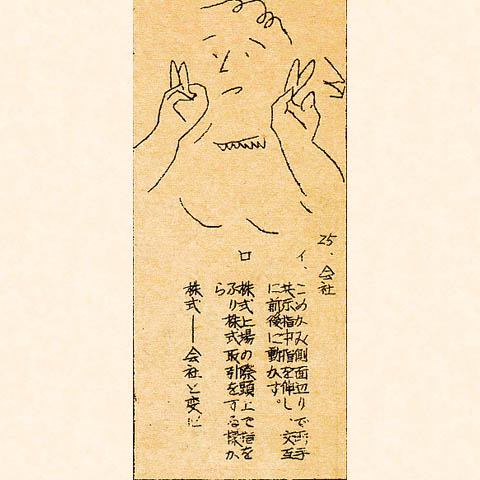 25、会社
イ、こめかみ側面辺りで両手
共示指中指を伸し、交互
に前後に動かす。
ロ 株式上場の際頭上で指を
ふり株式取引をする様か
ら
株式―会社と変に